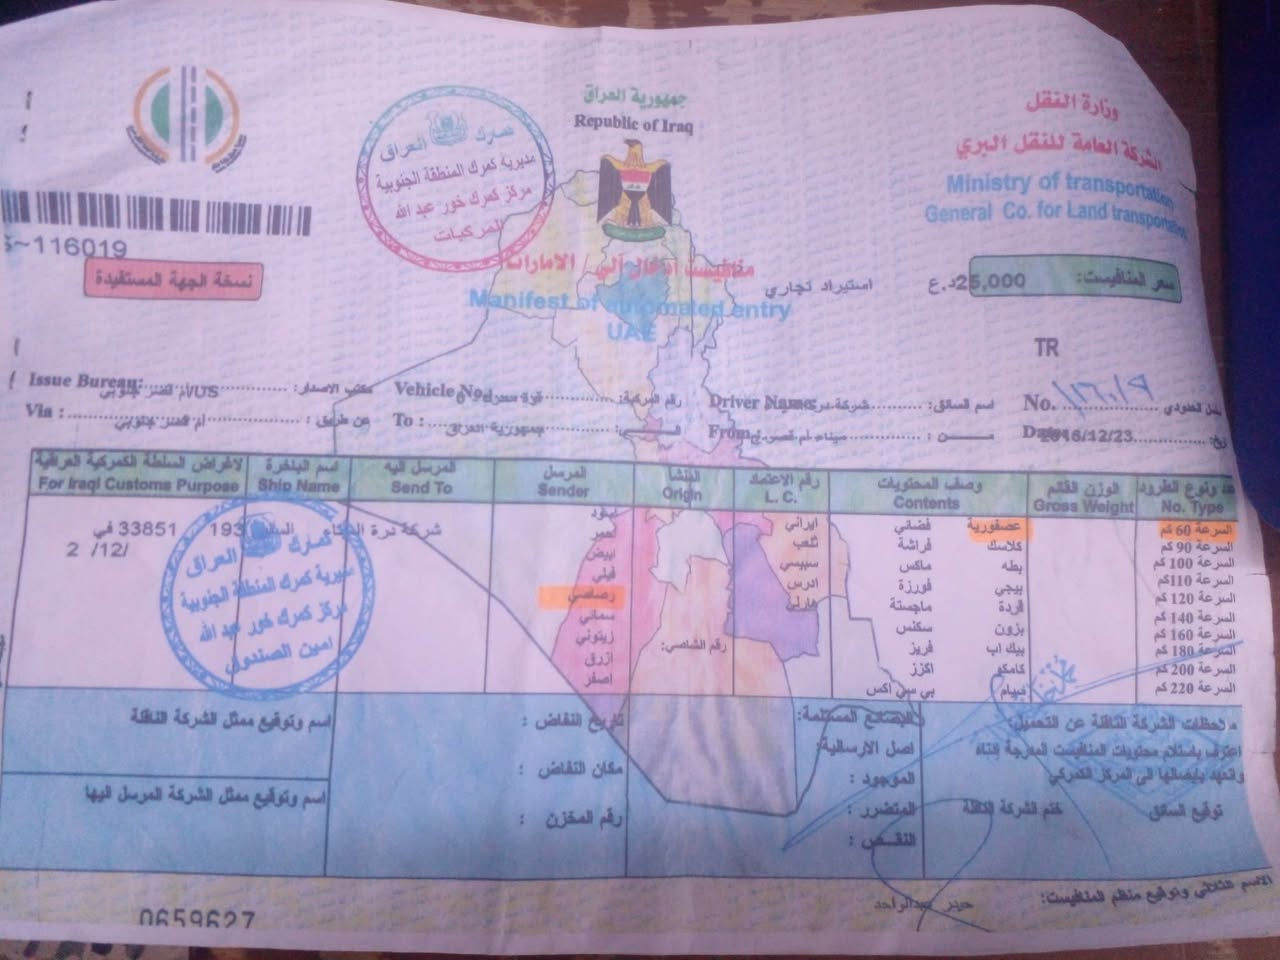 جمهورية العراق
Republic of Iraq
وزارة النقل
الشركة العامة للنقل البري
Ministry of transportation
General Co. for Land transportation
كمارك العراق
مديرية كمرك المنطقة الجنوبية
مركز كمرك خور عبد الله
المركبات
116019
نسخة الجهة المستفيدة
منافيست ادخال آلي / الامارات
Manifest of automated entry
UAE
استيراد تجاري
سعر المنافيست: 25,000 د.ع
TR
Issue Bureau: أم قصر جنوبي/UTS مكتب الاصدار:
Vehicle No رقم المركبة:
Driver Name اسم السائق:
No. الحدودي
Via : أم قصر جنوبي عن طريق :
To : جمهورية العراق الــى :
From ميناء أم قصر مــن :
Date 2016/12/23
لاغراض السلطة الكمركية العراقية
For Iraqi Customs Purpose
اسم الباخرة
Ship Name
المرسل اليه
Send To
المرسل
Sender
المنشأ
Origin
رقم الاعتماد
L. C.
وصف المحتويات
Contents
الوزن القائم
Gross Weight
ونوع الطرود
No. Type
السرعة 60 كم
السرعة 90 كم
السرعة 100 كم
السرعة 110 كم
السرعة 120 كم
السرعة 140 كم
السرعة 160 كم
السرعة 180 كم
السرعة 200 كم
السرعة 220 كم
عصفورية فضائي ايراني
كلاسك فراشة ثعلب
بطه ماكس سبيسي
بيجي فورزة ادرس
قردة ماجستة هارلي
بزون سكنس
بيك اب فريز
كامكو اكزز
صيام بي سي اكس
رقم الشاصي:
اسود
احمر
ابيض
نيلي
رصاصي
سمائي
زيتوني
ازرق
اصفر
شركة درة
193 33851 في
2 /12/
كمارك العراق
مديرية كمرك المنطقة الجنوبية
مركز كمرك خور عبد الله
امين الصندوق
ملاحظات الشركة الناقلة عن التحميل:
اعترف باستلام محتويات المنافيست المدرجة اعلاه
واتعهد بايصالها الى المركز الكمركي
توقيع السائق ختم الشركة الناقلة
البضائع المستلمة:
اصل الارسالية:
الموجود :
المتضرر :
النقــص :
تاريخ النفاض :
مكان النفاض :
رقم المخزن :
اسم وتوقيع ممثل الشركة الناقلة
اسم وتوقيع ممثل الشركة المرسل اليها
الاسم الثلاثي وتوقيع منظم المنافيست:
حيدر عبدالواحد
0659627